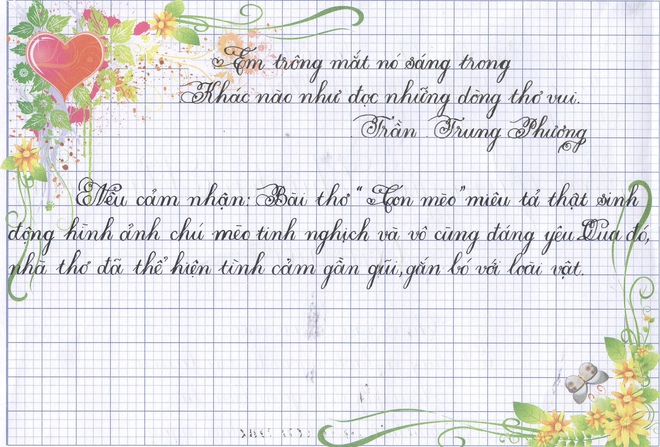 Em trông mắt nó sáng trong
Khác nào như đọc những dòng thơ vui.
Trần Trung Phương
Nêu cảm nhận: Bài thơ "Con mèo" miêu tả thật sinh
động hình ảnh chú mèo tinh nghịch và vô cùng đáng yêu. Qua đó,
nhà thơ đã thể hiện tình cảm gần gũi, gắn bó với loài vật.